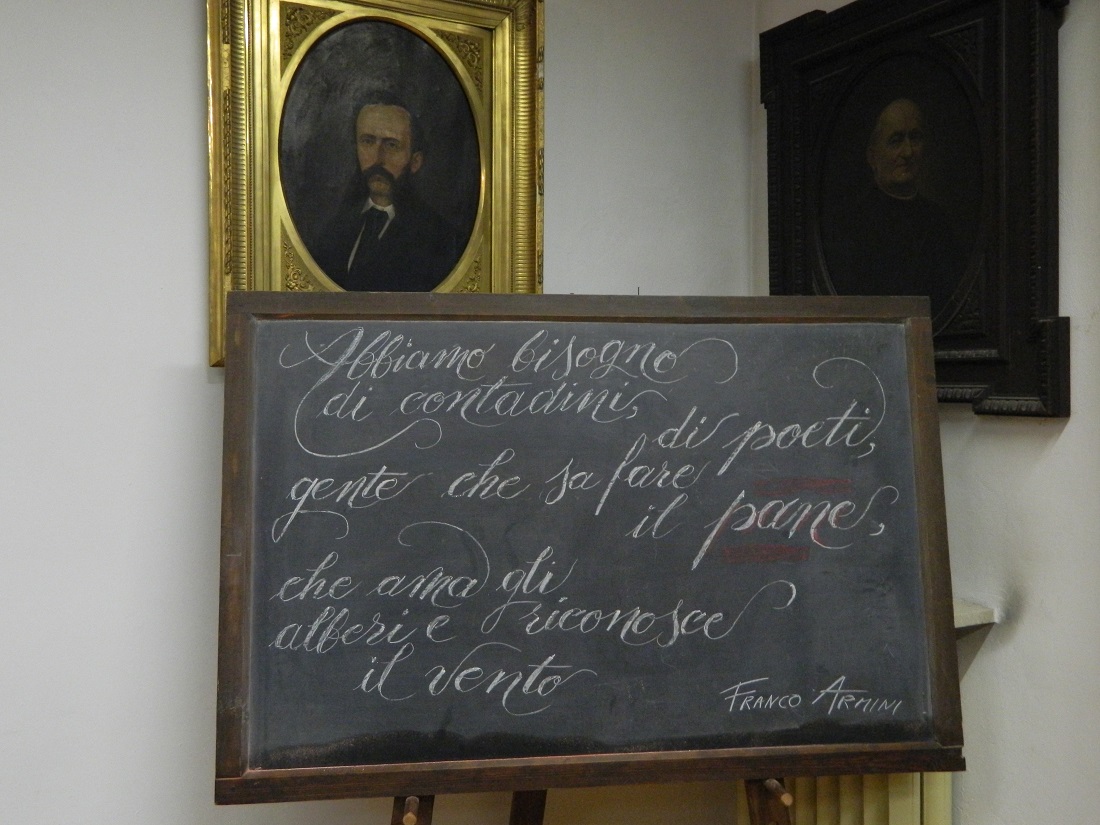 Abbiamo bisogno
di contadini,
di poeti,
gente che sa fare
il pane,
che ama gli
alberi e riconosce
il vento
FRANCO ARMINI